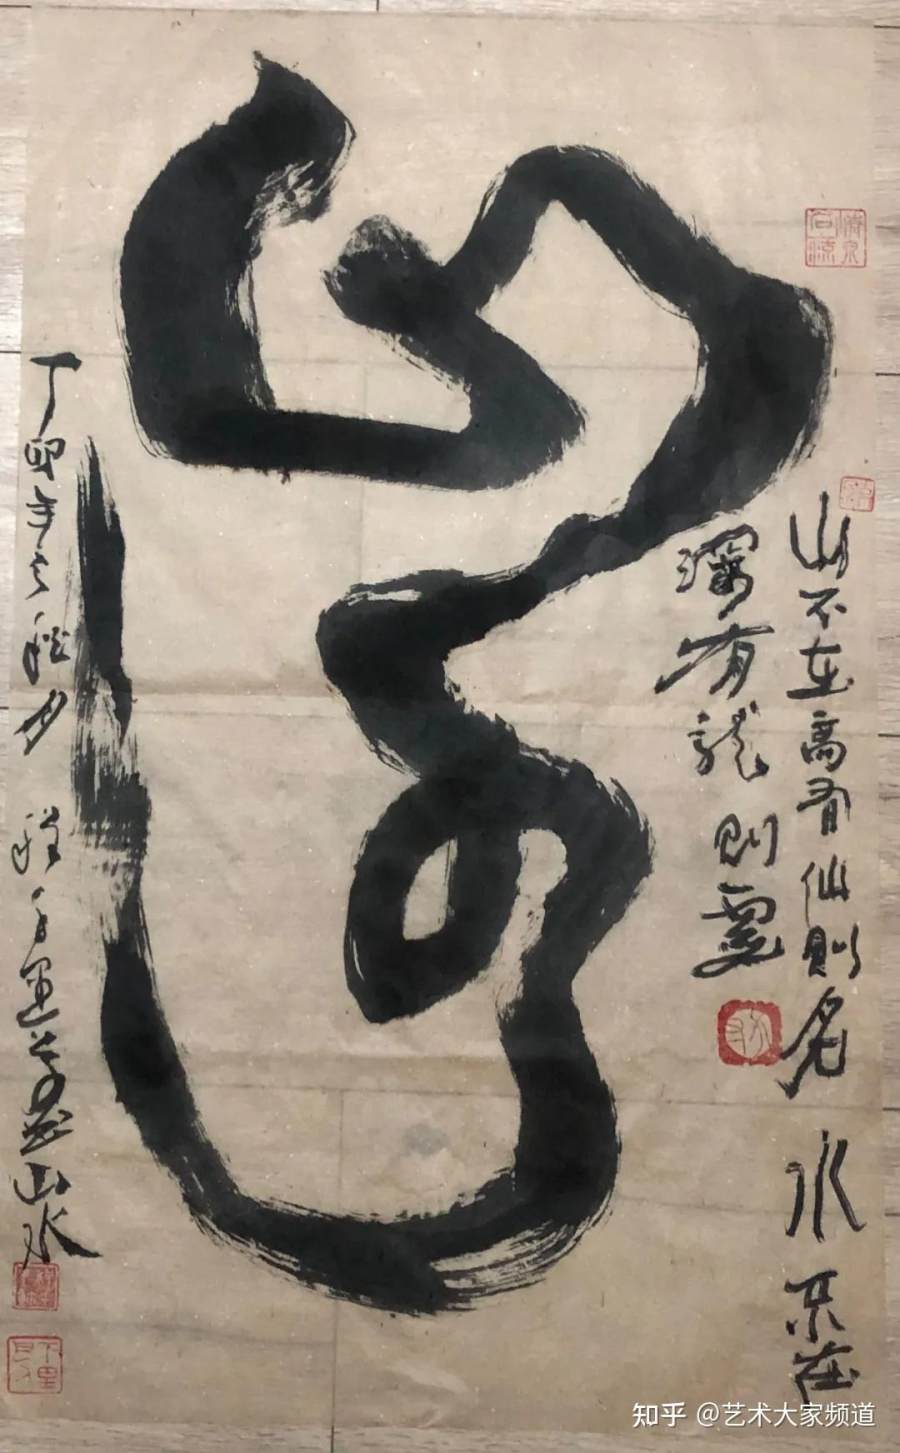 山不在高有仙則名水不在
深有龍則靈
山水
丁卯年之秋 山水
知乎 @艺术大家频道